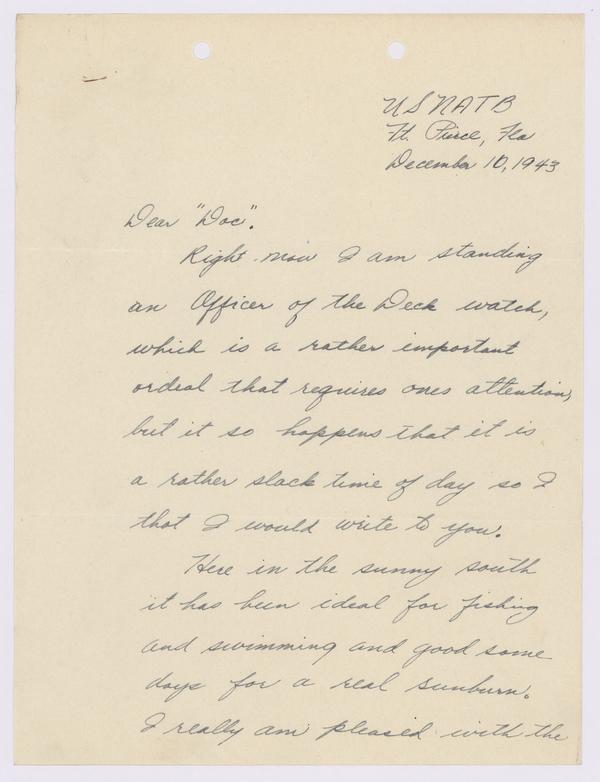 USNATB
Ft. Pierce, Fla
December 10, 1943
Dear "Doc".
Right now I am standing
an Officer of the Deck watch,
which is a rather important
ordeal that requires ones attention,
but it so happens that it is
a rather slack time of day so I
that I would write to you.
Here in the sunny south
it has been ideal for fishing
and swimming and good some
days for a real sunburn.
I really am pleased with the